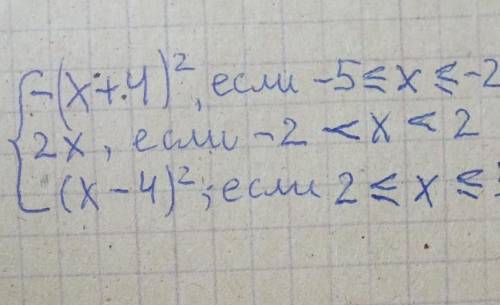 -(x+4)², если -5≤x≤-2
2x, если -2<x<2
(x-4)², если 2≤x≤